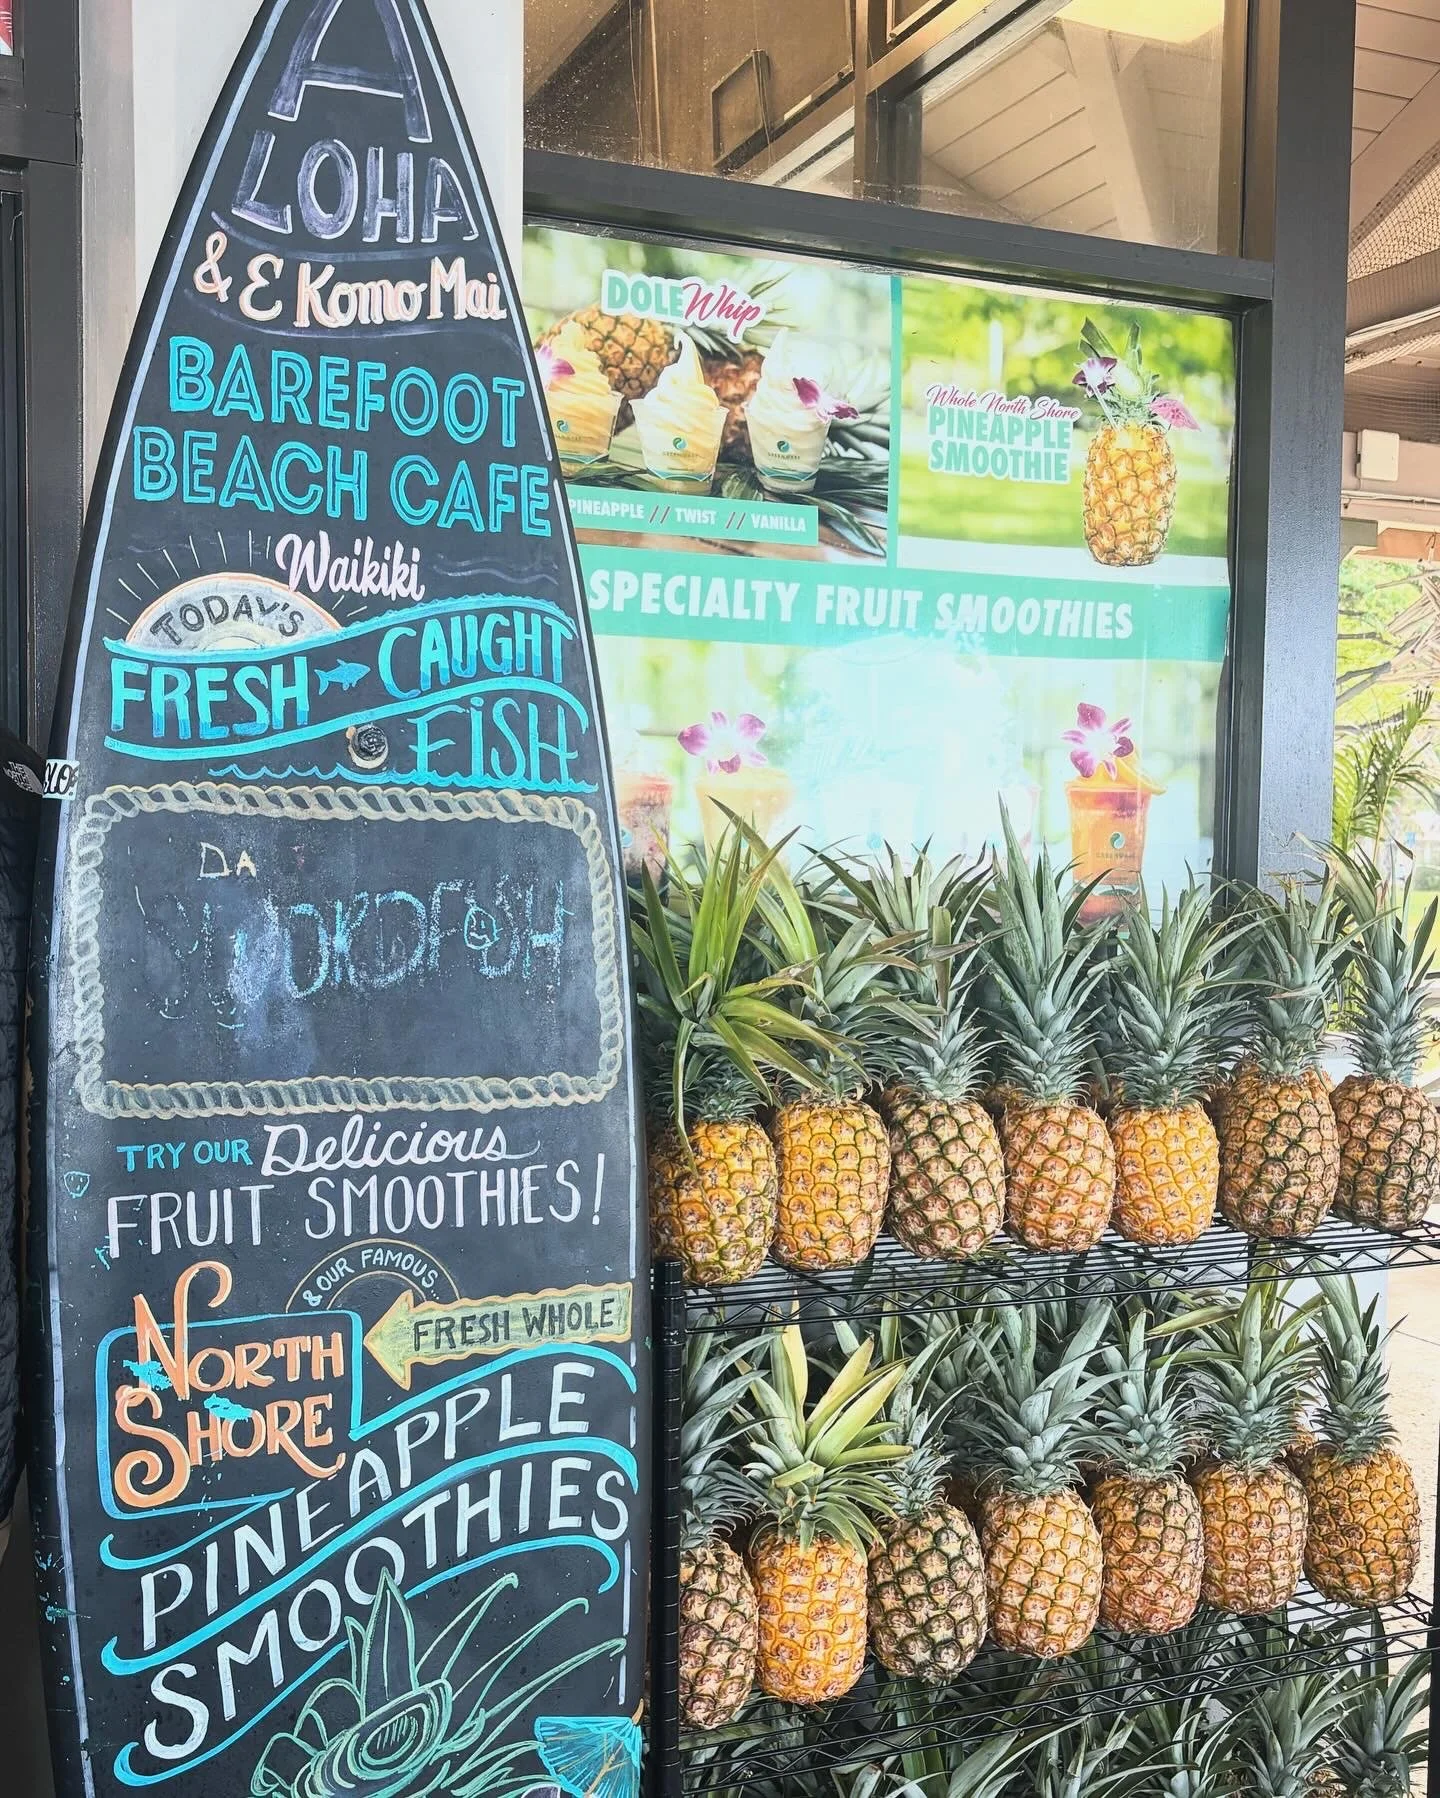 A
LOHA
& E Komo Mai
BAREFOOT
BEACH CAFE
Waikiki
TODAY'S
FRESH CAUGHT
FISH
DA
TRY OUR Delicious
FRUIT SMOOTHIES!
& OUR FAMOUS...
FRESH WHOLE
NORTH
SHORE
PINEAPPLE
SMOOTHIES
DOLE Whip
PINEAPPLE // TWIST // VANILLA
Whole North Shore
PINEAPPLE
SMOOTHIE
SPECIALTY FRUIT SMOOTHIES
THE
NORTH
FACE